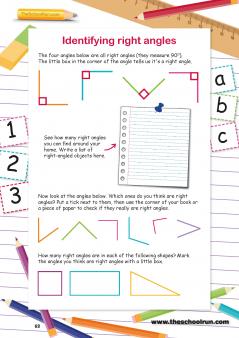 TheSchoolRun.com
Identifying right angles
The four angles below are all right angles (they measure 90º).
The little box in the corner of the angle tells us it's a right angle.
a
b
c
1
2
3
See how many right angles
you can find around your
home. Write a list of
right-angled objects here.
Now look at the angles below. Which ones do you think are right
angles? Put a tick next to them, then use the corner of your book or
a piece of paper to check if they really are right angles.
How many right angles are in each of the following shapes? Mark
the angles you think are right with a little box.
www.theschoolrun.com